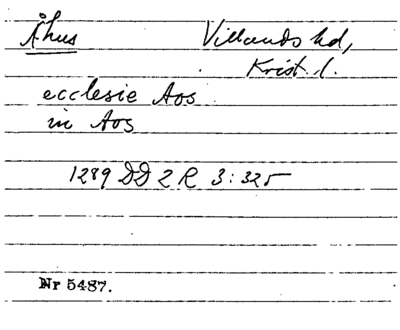 Åhus Villands hd,
Krist. l.
ecclesie Aos
in Aos
1289 DD 2 R 3:325
Nr 5487.